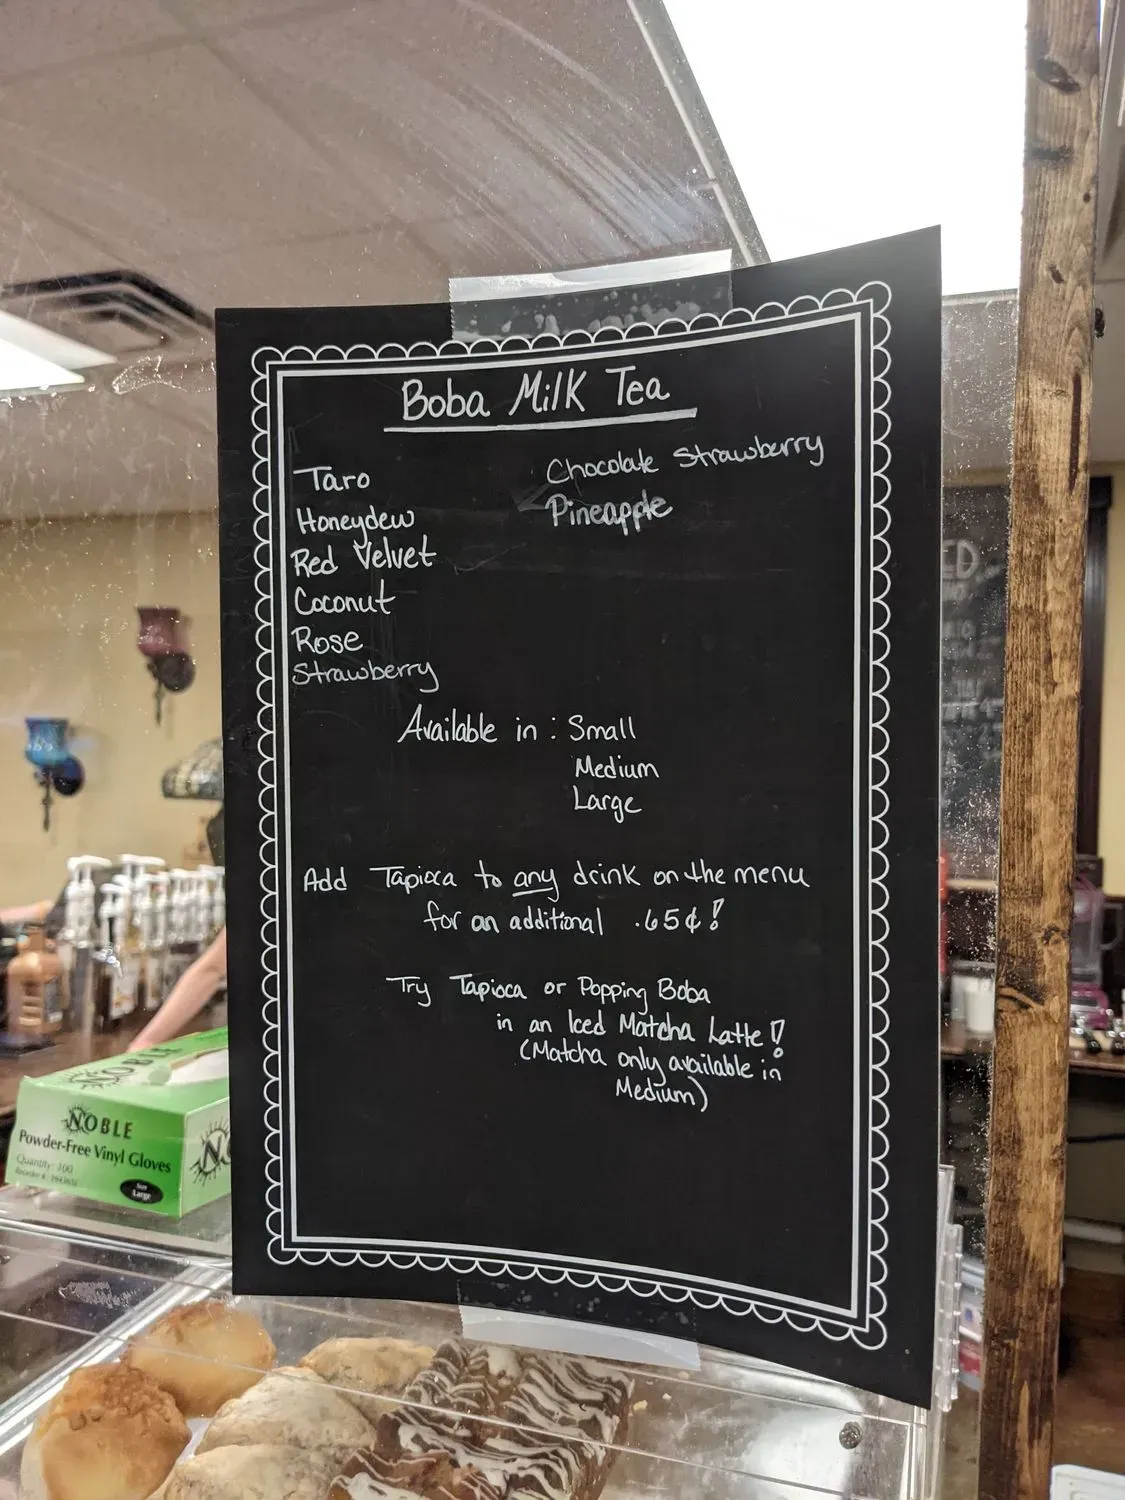 Boba Milk Tea
Taro
Honeydew
Red Velvet
Coconut
Rose
Strawberry
Chocolate Strawberry
Pineapple
Available in : Small
Medium
Large
Add Tapioca to any drink on the menu
for an additional .65¢!
Try Tapioca or Popping Boba
in an Iced Matcha Latte!
(Matcha only available in
Medium)
NOBLE
NOBLE
Powder-Free Vinyl Gloves
Quantity: 100
Size
Large